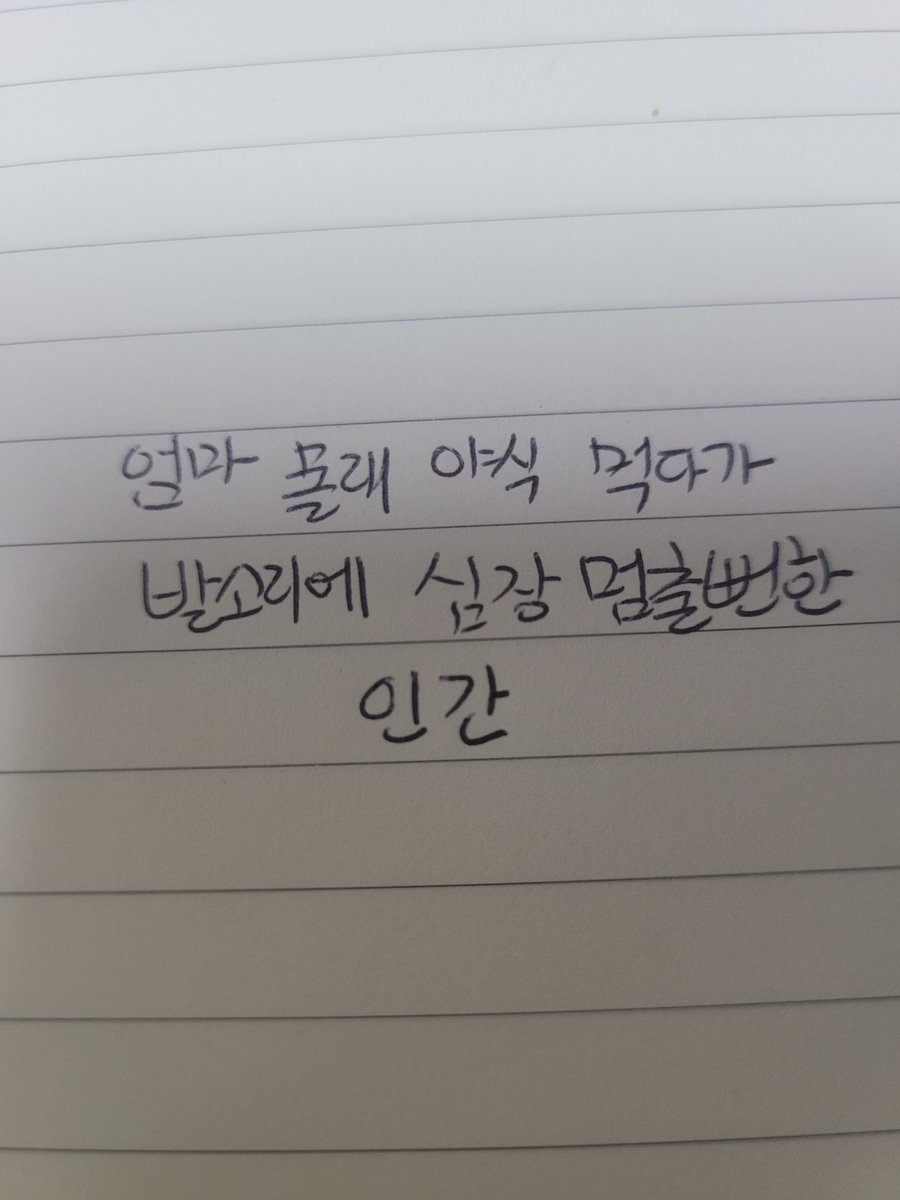 엄마 몰래 야식 먹다가
발소리에 심장 멈출뻔한
인간